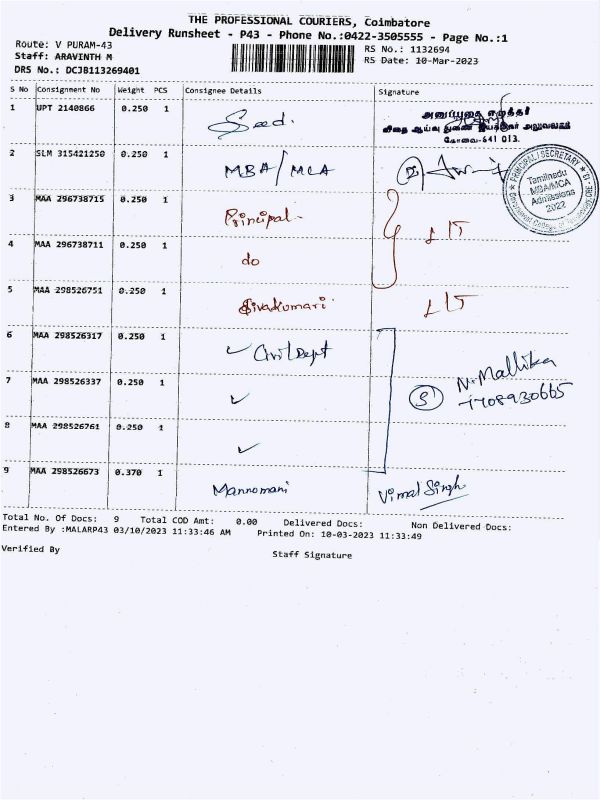 THE PROFESSIONAL COURIERS, Coimbatore
Delivery Runsheet - P43 - Phone No.:0422-3505555 - Page No.:1
Route: V PURAM-43
RS No.: 1132694
Staff: ARAVINTH M
RS Date: 10-Mar-2023
DRS No.: DCJB113269401
S No Consignment No Weight PCS Consignee Details Signature
1 UPT 2140866 0.250 1 Seed.
அனுப்புதை எழுத்தர்
விதை ஆய்வு துணை இயக்குநர் அலுவலகம்
கோவை-641 013.
2 SLM 315421250 0.250 1 MBA/MCA
PRINCIPAL / SECRETARY
Tamilnadu
MBA/MCA
Admissions
2022
3 MAA 296738715 0.250 1 Principal.
4 MAA 296738711 0.250 1 do
5 MAA 298526751 0.250 1 Sivakumari
6 MAA 298526317 0.250 1 ✓ Civil Dept
7 MAA 298526337 0.250 1 ✓
N. Mallika
7708930665
8 MAA 298526761 0.250 1 ✓
9 MAA 298526673 0.370 1 Mannomani Vimal Singh
Total No. Of Docs: 9 Total COD Amt: 0.00 Delivered Docs: Non Delivered Docs:
Entered By :MALARP43 03/10/2023 11:33:46 AM Printed On: 10-03-2023 11:33:49
Verified By
Staff Signature